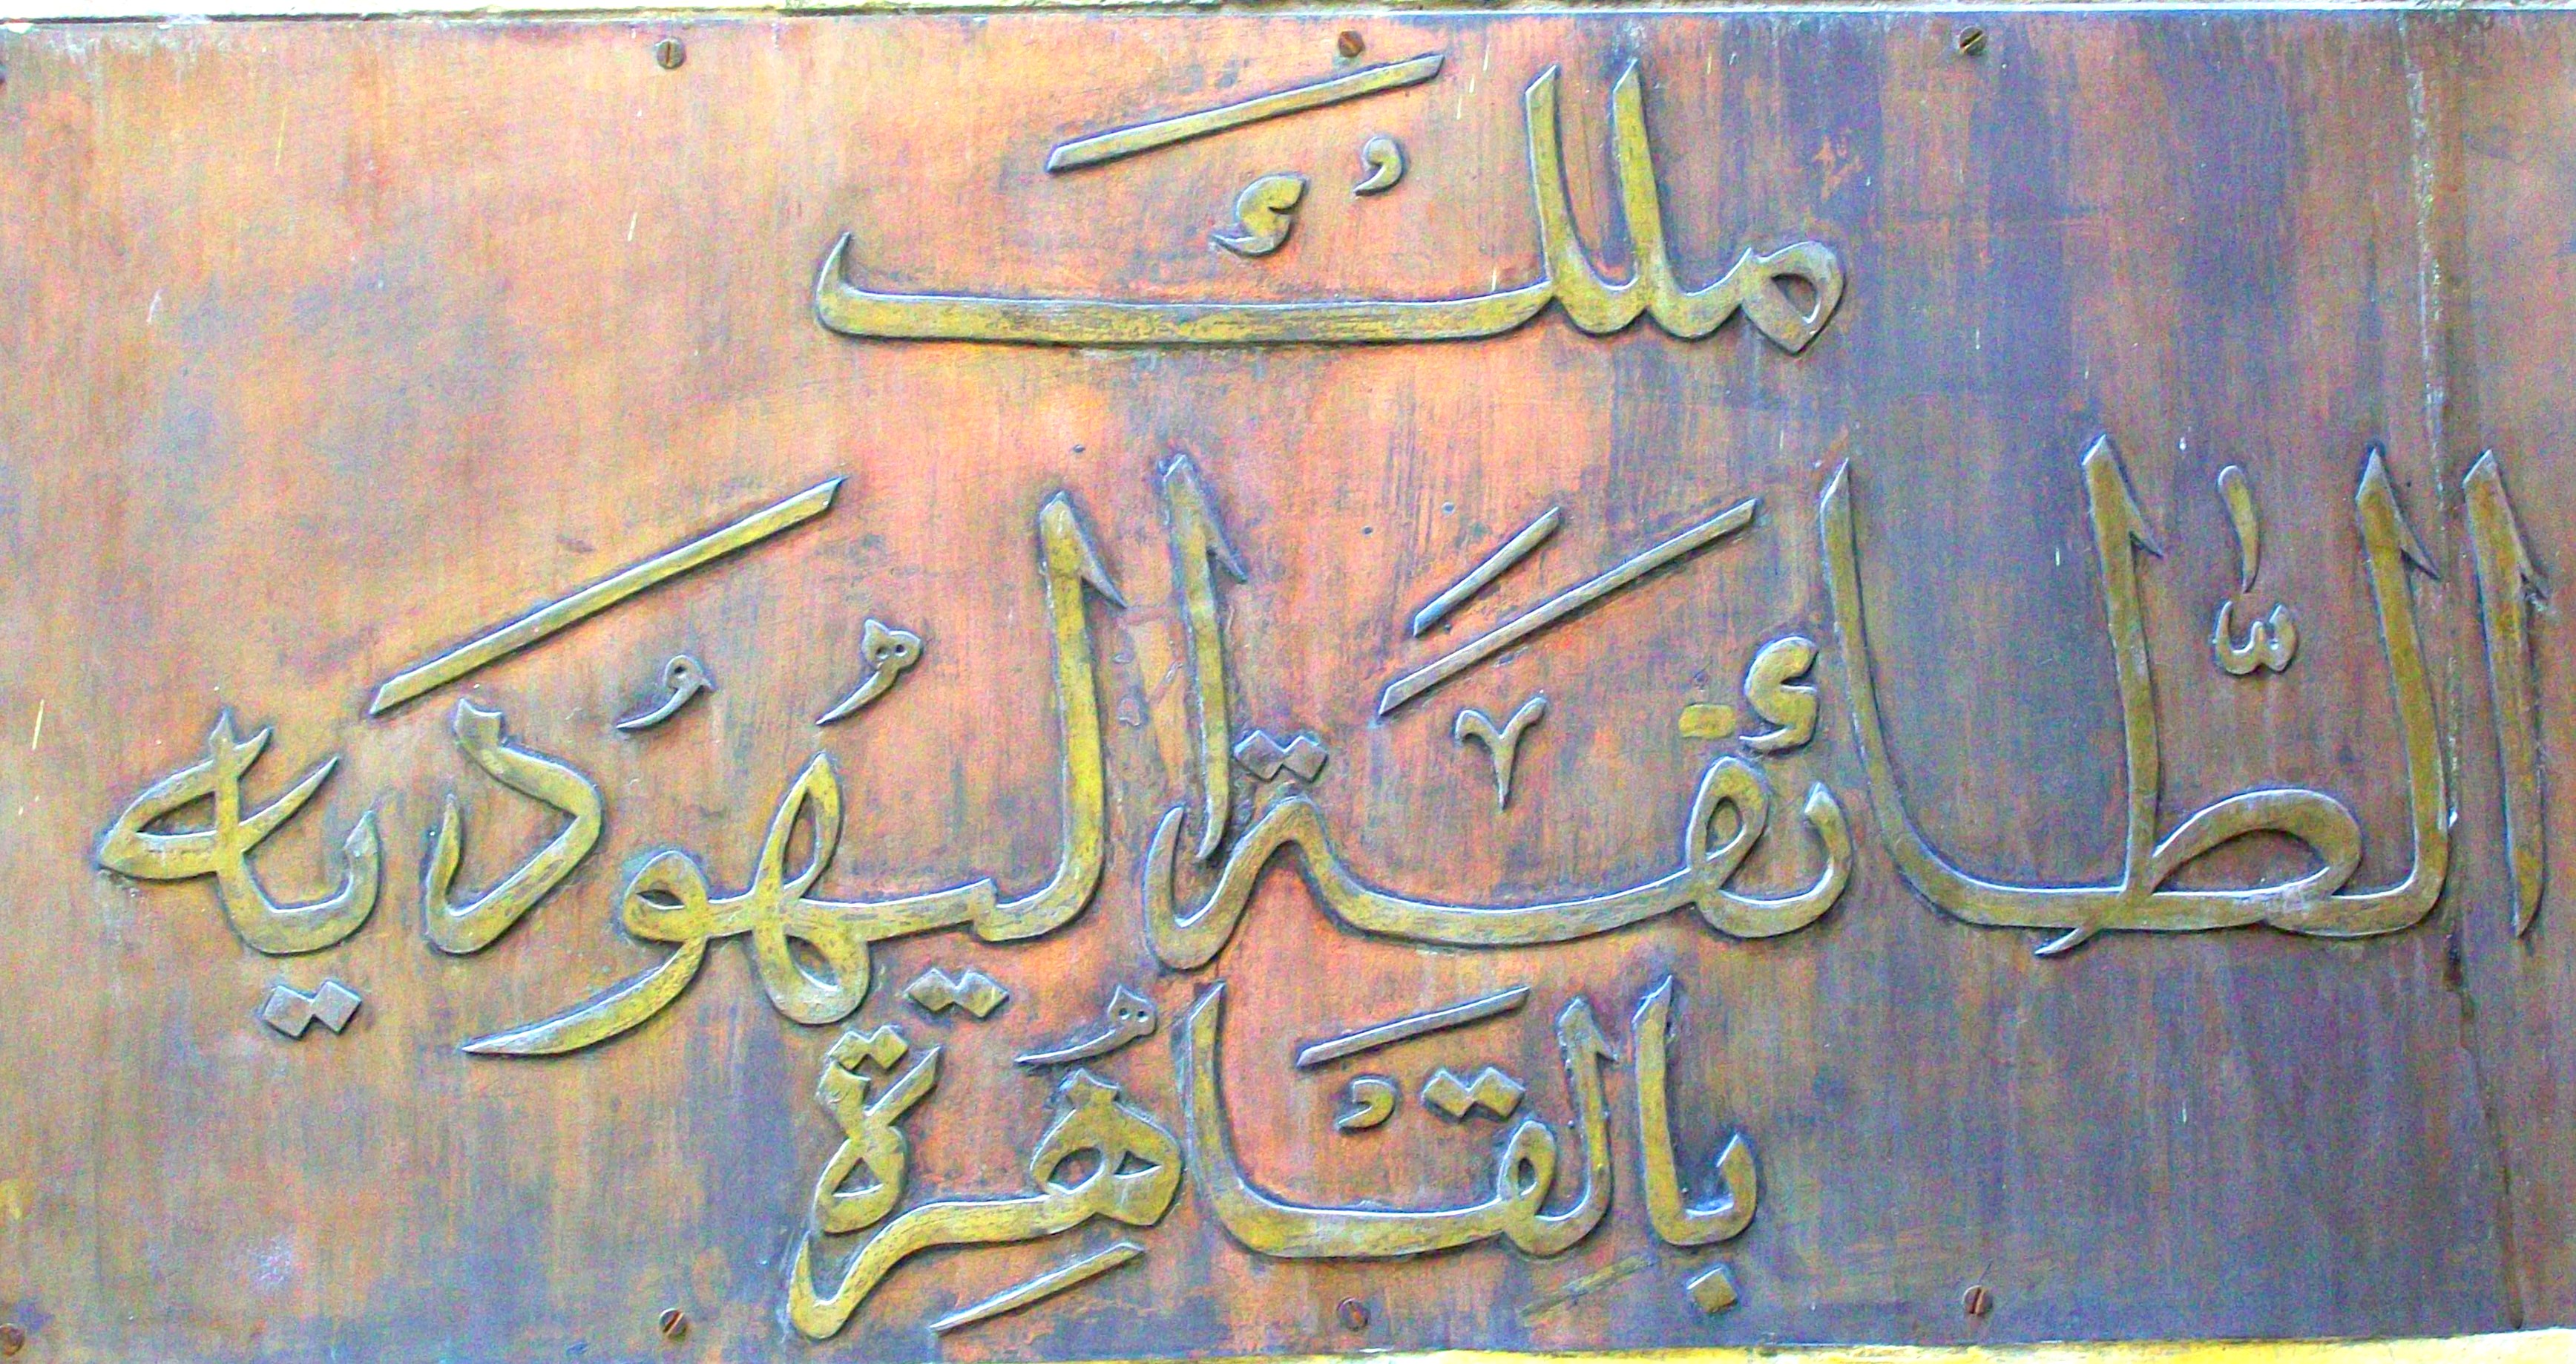 ملك
الطّائفة اليهوديه
بالقاهرة